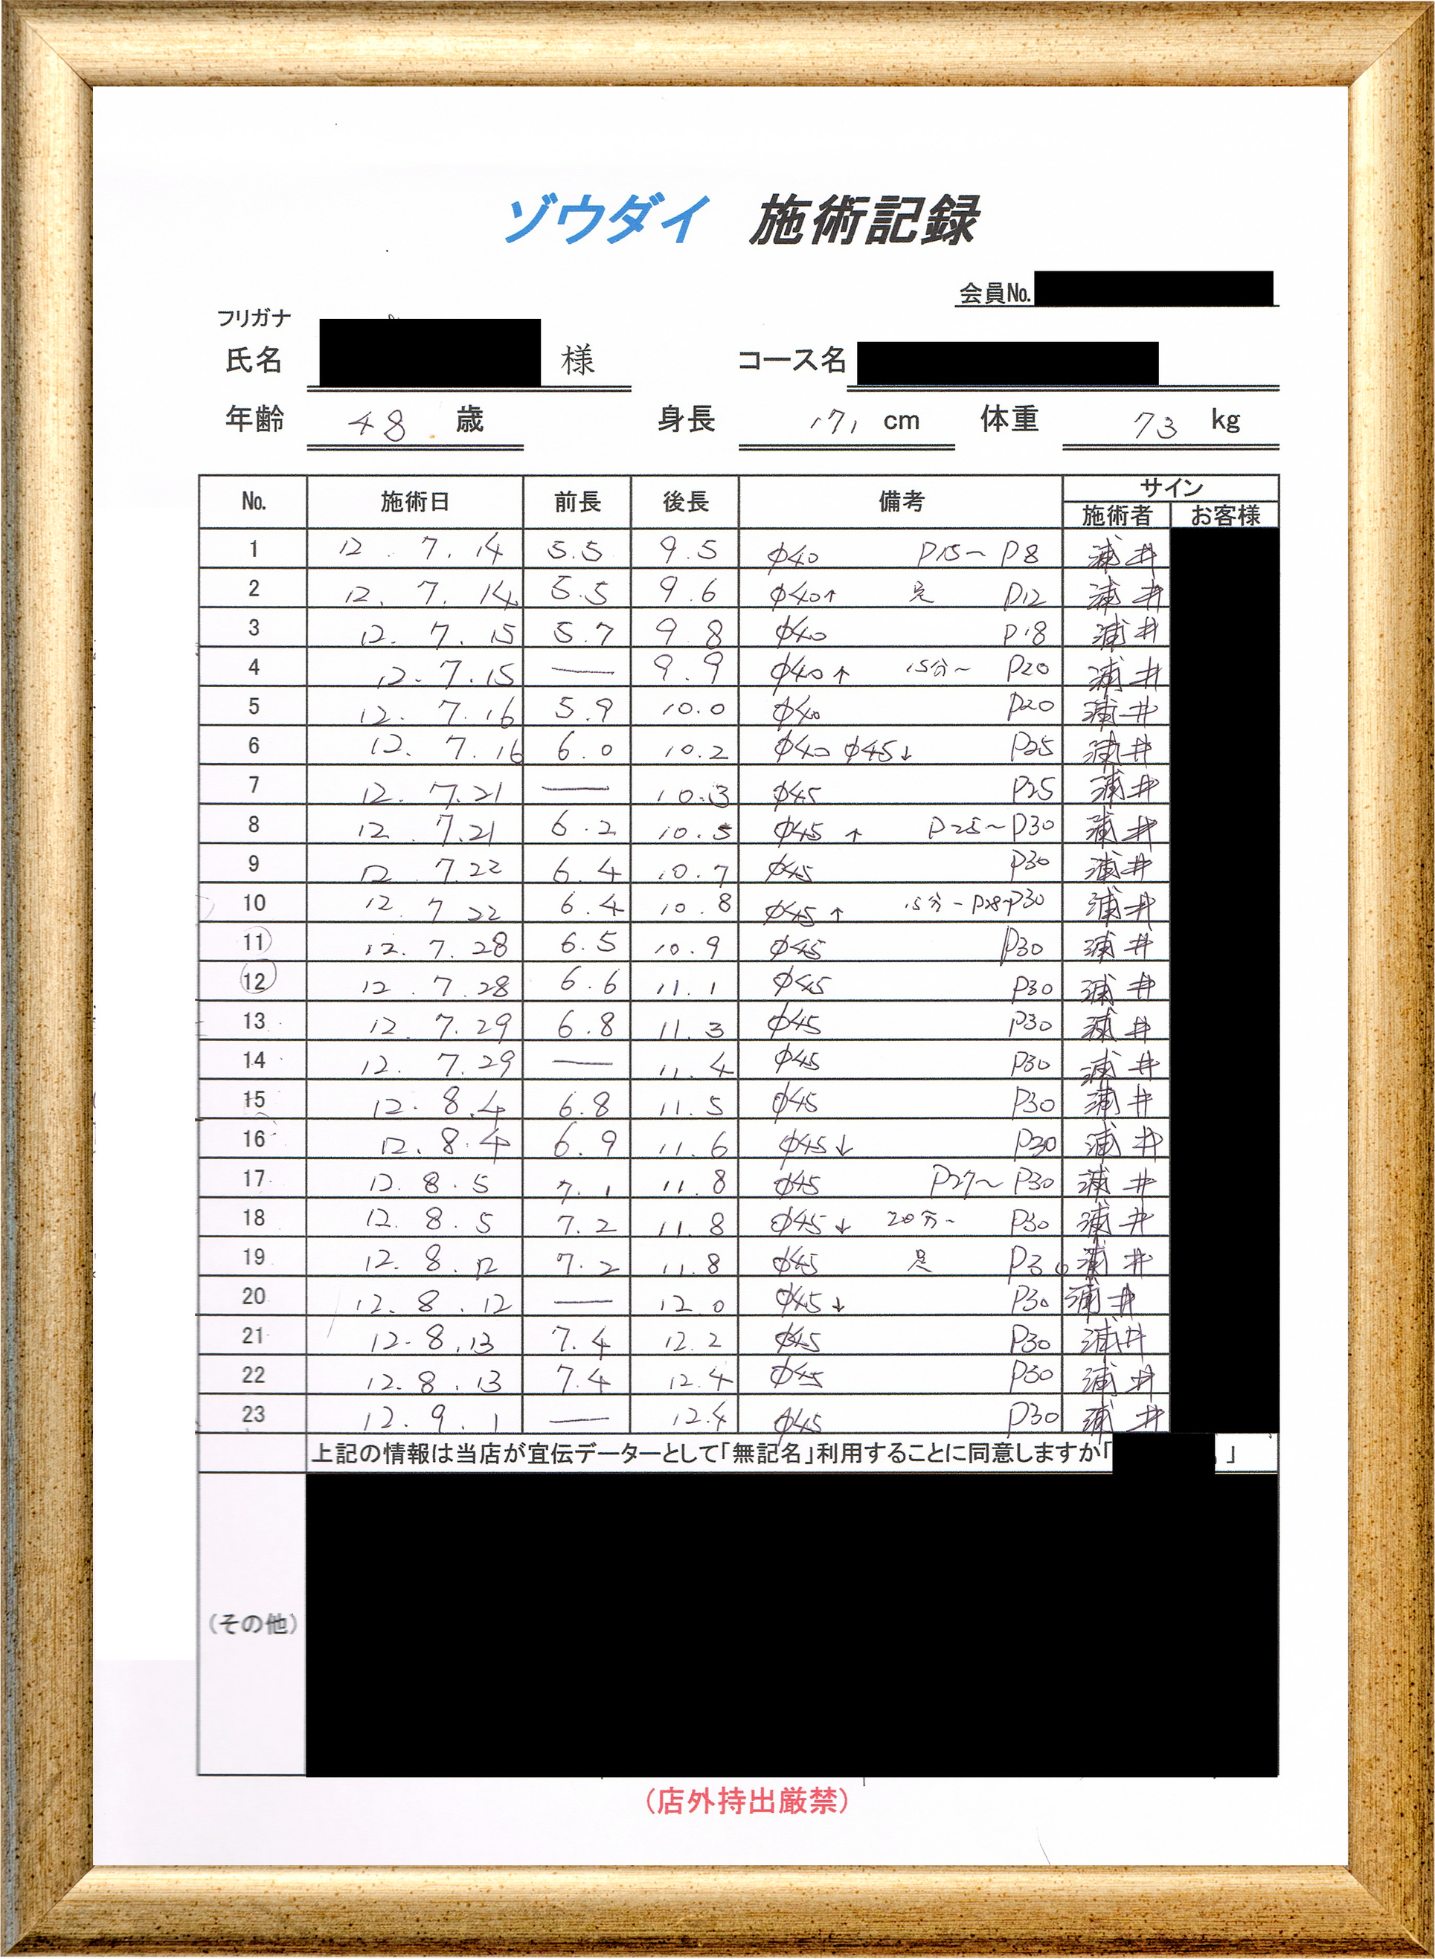 ゾウダイ 施術記録
会員No.
フリガナ
氏名 様 コース名
年齢 48 歳 身長 171 cm 体重 73 kg
No. 施術日 前長 後長 備考 サイン
施術者 お客様
1 12.7.14 5.5 9.5 φ40 P15~P8 浦井
2 12.7.14 5.5 9.6 φ40↑ P12 浦井
3 12.7.15 5.7 9.8 φ40 P18 浦井
4 12.7.15 — 9.9 φ40↑ 15分~ P20 浦井
5 12.7.16 5.9 10.0 φ40 P20 浦井
6 12.7.16 6.0 10.2 φ40 φ45↓ P25 浦井
7 12.7.21 — 10.3 φ45 P25 浦井
8 12.7.21 6.2 10.5 φ45↑ P25~P30 浦井
9 12.7.22 6.4 10.7 φ45 P30 浦井
10 12.7.22 6.4 10.8 φ45↑ 15分~P28→P30 浦井
11 12.7.28 6.5 10.9 φ45 P30 浦井
12 12.7.28 6.6 11.1 φ45 P30 浦井
13 12.7.29 6.8 11.3 φ45 P30 浦井
14 12.7.29 — 11.4 φ45 P30 浦井
15 12.8.4 6.8 11.5 φ45 P30 浦井
16 12.8.4 6.9 11.6 φ45↓ P30 浦井
17 12.8.5 7.1 11.8 φ45 P27~P30 浦井
18 12.8.5 7.2 11.8 φ45↓ 20分~ P30 浦井
19 12.8.12 7.2 11.8 φ45 P30 浦井
20 12.8.12 — 12.0 φ45↓ P30 浦井
21 12.8.13 7.4 12.2 φ45 P30 浦井
22 12.8.13 7.4 12.4 φ45 P30 浦井
23 12.9.1 — 12.4 φ45 P30 浦井
上記の情報は当店が宜伝データーとして「無記名」利用することに同意しますか「 」
(その他)
(店外持出厳禁)